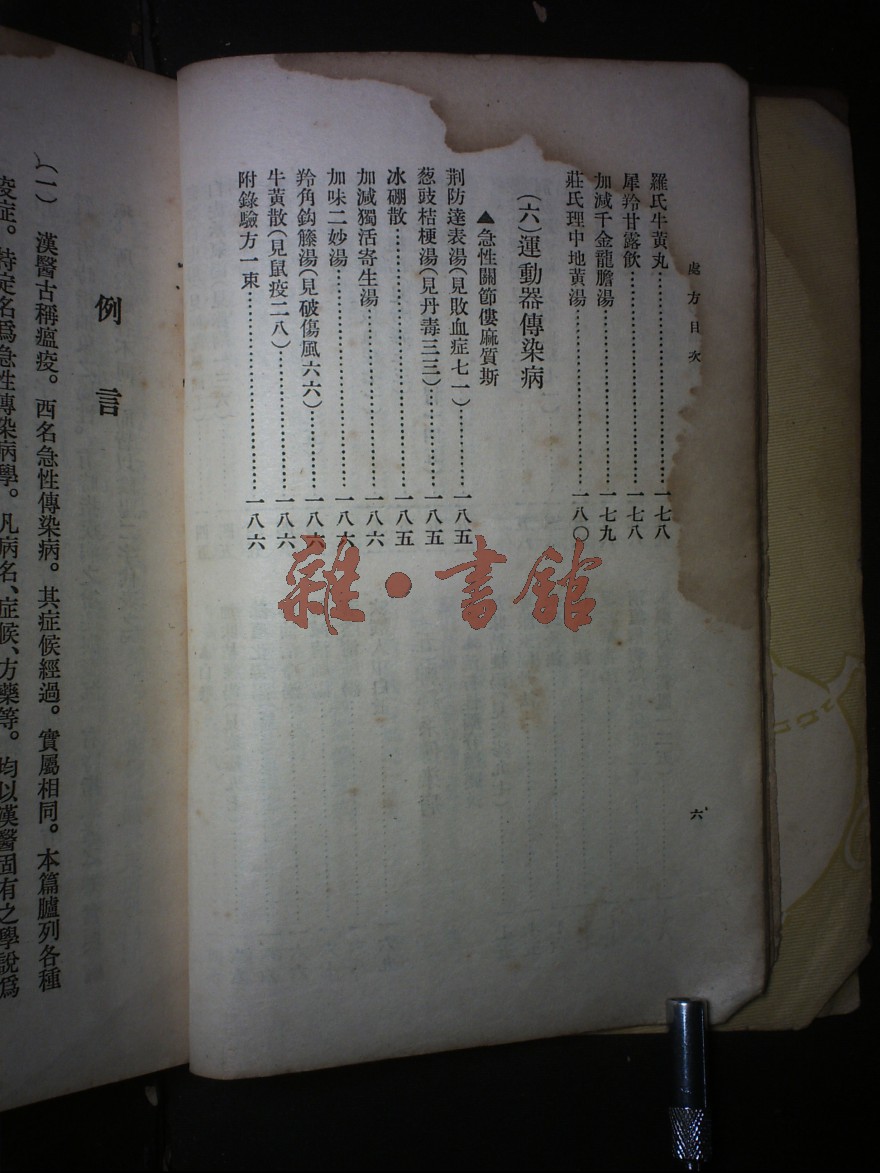 處方目次
羅氏牛黃丸……一七八
犀羚甘露飲……一七八
加減千金龍膽湯……一七九
莊氏理中地黃湯……一八〇
(六)運動器傳染病
▲急性關節僂麻質斯
荆防達表湯(見敗血症七一)……一八五
葱豉桔梗湯(見丹毒三三)……一八五
冰硼散……一八五
加減獨活寄生湯……一八六
加味二妙湯……一八六
羚角鈎籐湯(見破傷風六六)……一八六
牛黃散(見鼠疫二八)……一八六
附錄驗方一束……一八六
六
例言
(一) 漢醫古稱瘟疫。西名急性傳染病。其症候經過。實屬相同。本篇臚列各種
疫症。特定名爲急性傳染病學。凡病名、症候、方藥等。均以漢醫固有之學說爲
雜·書館